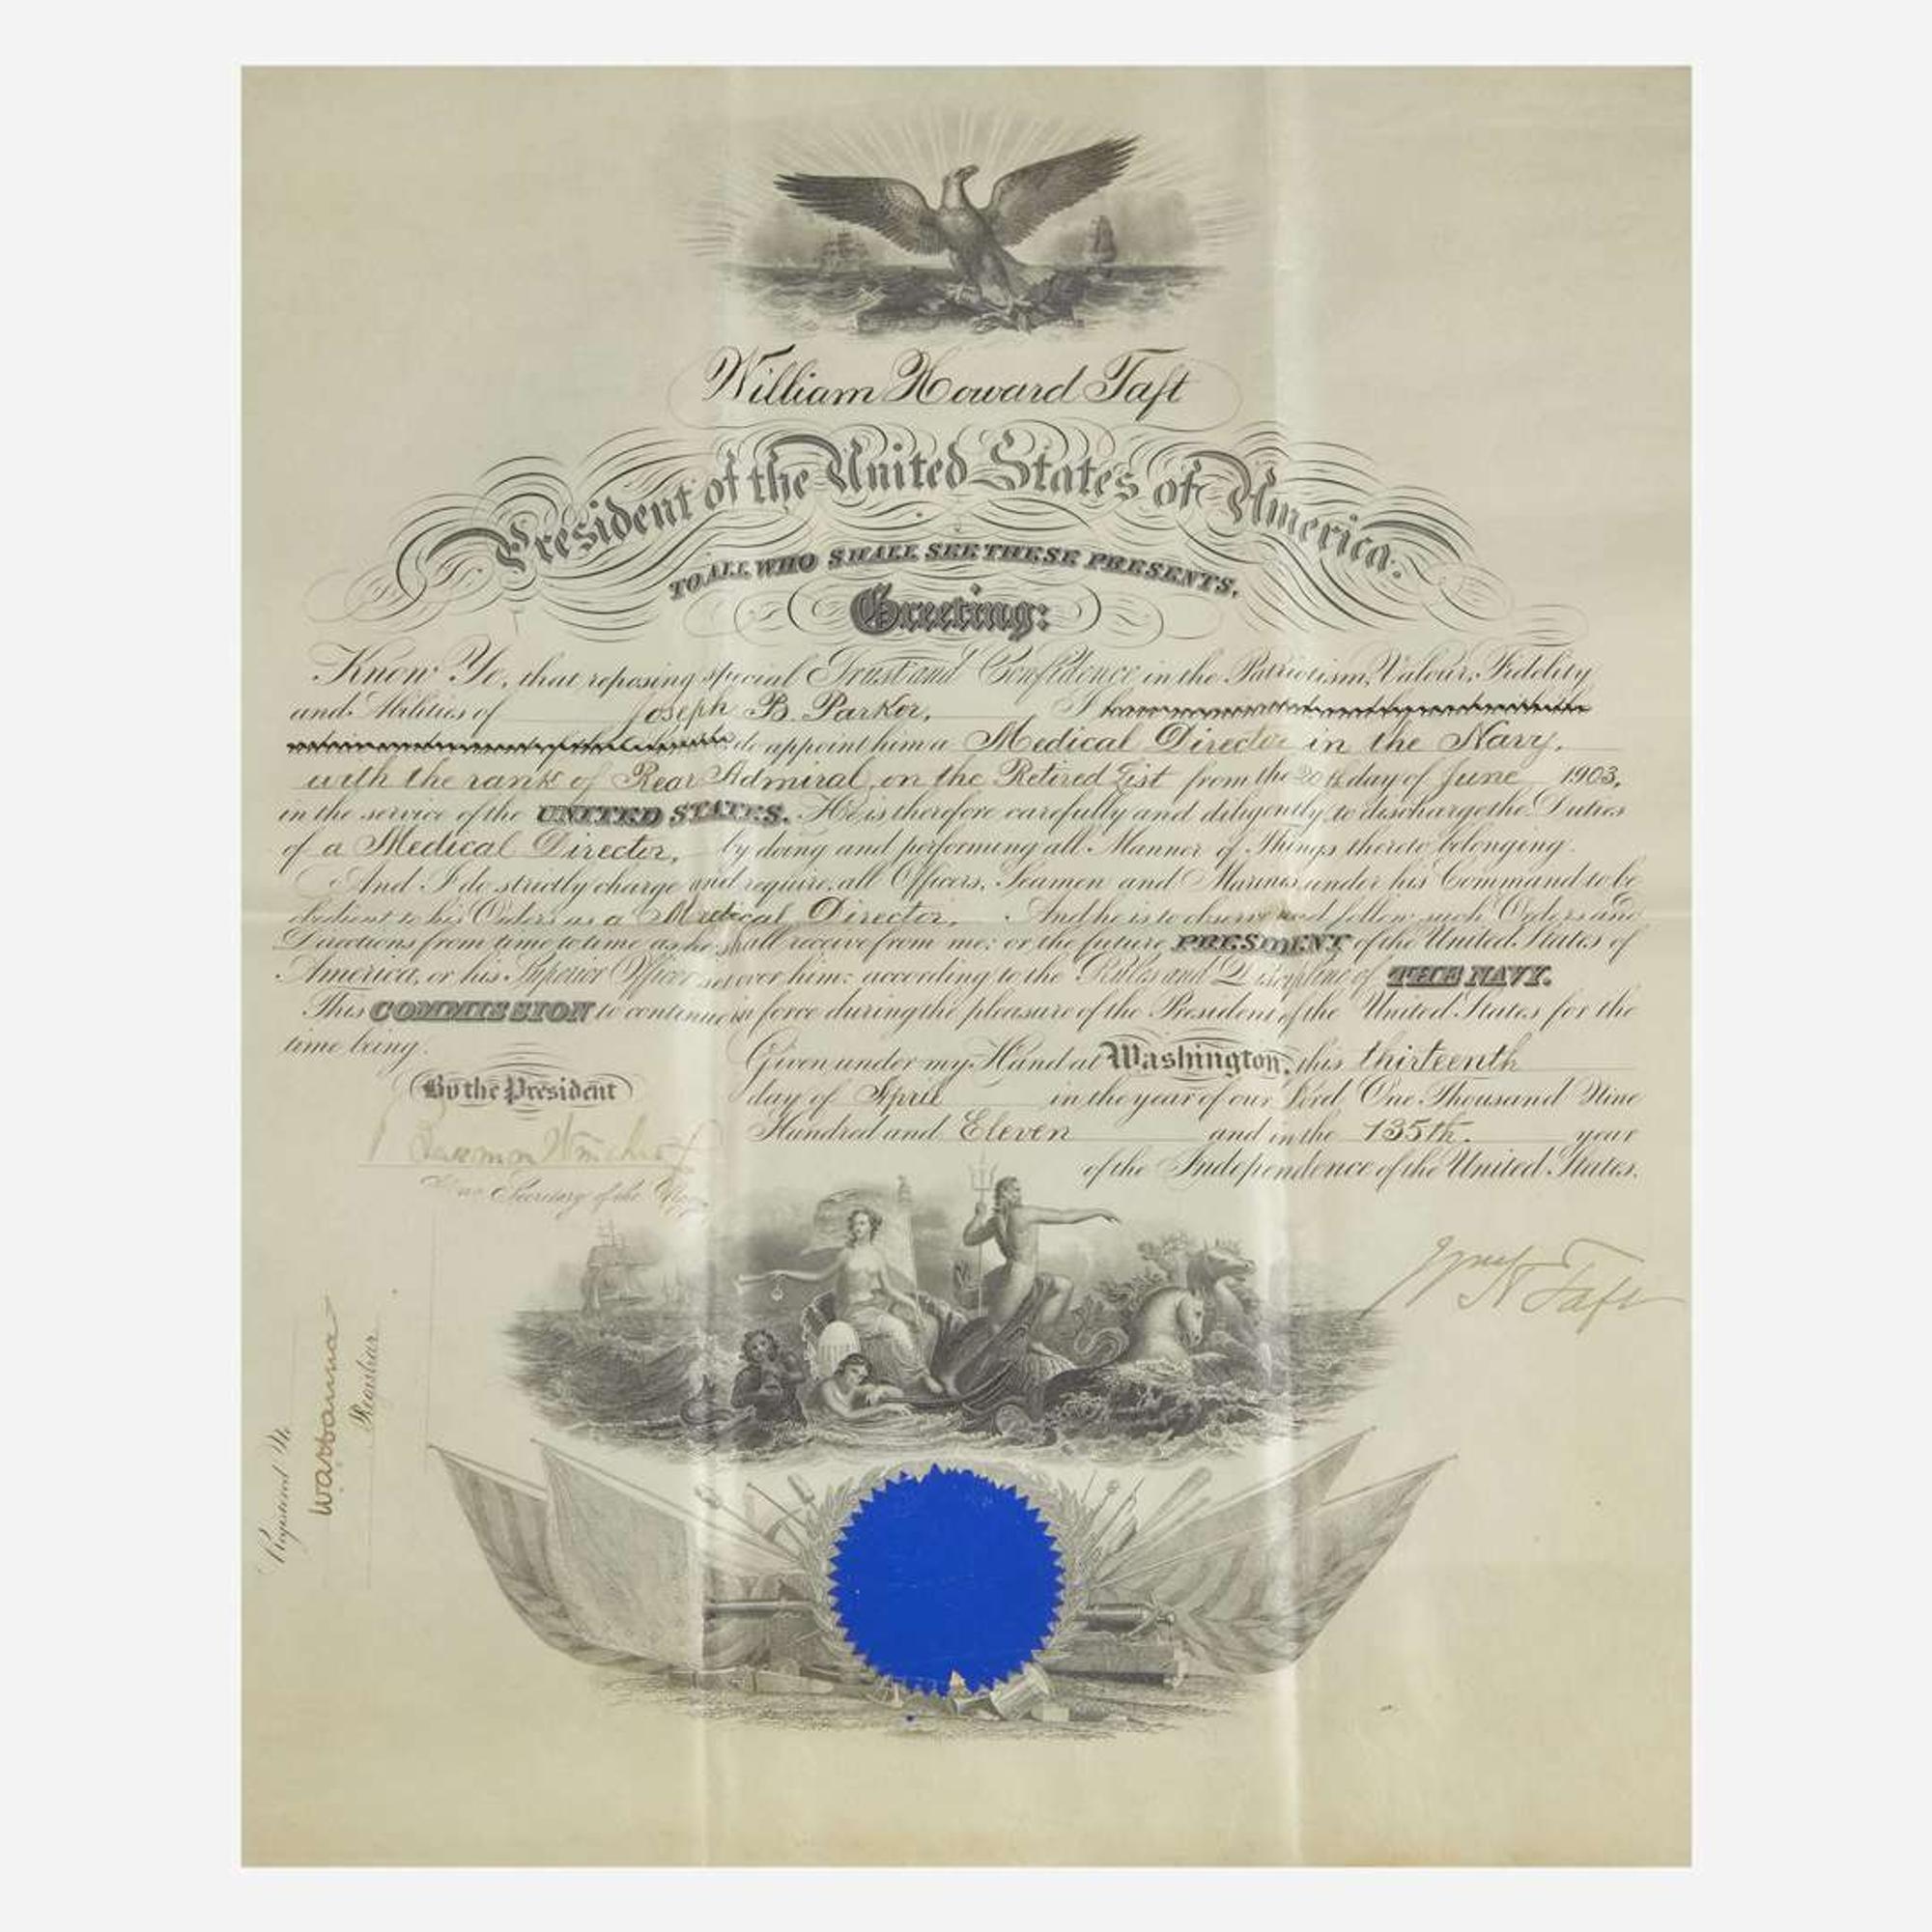 William Howard Taft
President of the United States of America.
TO ALL WHO SHALL SEE THESE PRESENTS,
Greeting:
Know Ye, that reposing special Trust and Confidence in the Patriotism, Valour, Fidelity
and Abilities of Joseph B. Parker, I
do appoint him a Medical Director in the Navy,
with the rank of Rear Admiral, on the Retired List from the 20th day of June 1903,
in the service of the UNITED STATES. He is therefore carefully and diligently to discharge the Duties
of a Medical Director, by doing and performing all Manner of Things thereto belonging.
And I do strictly charge and require all Officers, Seamen and Marines under his Command to be
obedient to his Orders as a Medical Director. And he is to observe and follow such Orders and
Directions from time to time as he shall receive from me; or the future PRESIDENT of the United States of
America, or his Superior Officer set over him; according to the Rules and Discipline of THE NAVY.
This COMMISSION to continue in force during the pleasure of the President of the United States for the
time being.
Given under my Hand at Washington, this thirteenth
By the President
day of April in the year of our Lord One Thousand Nine
Hundred and Eleven and in the 135th. year
of the Independence of the United States.
Secretary of the Navy
Wm H Taft
Registered No.
Registrar